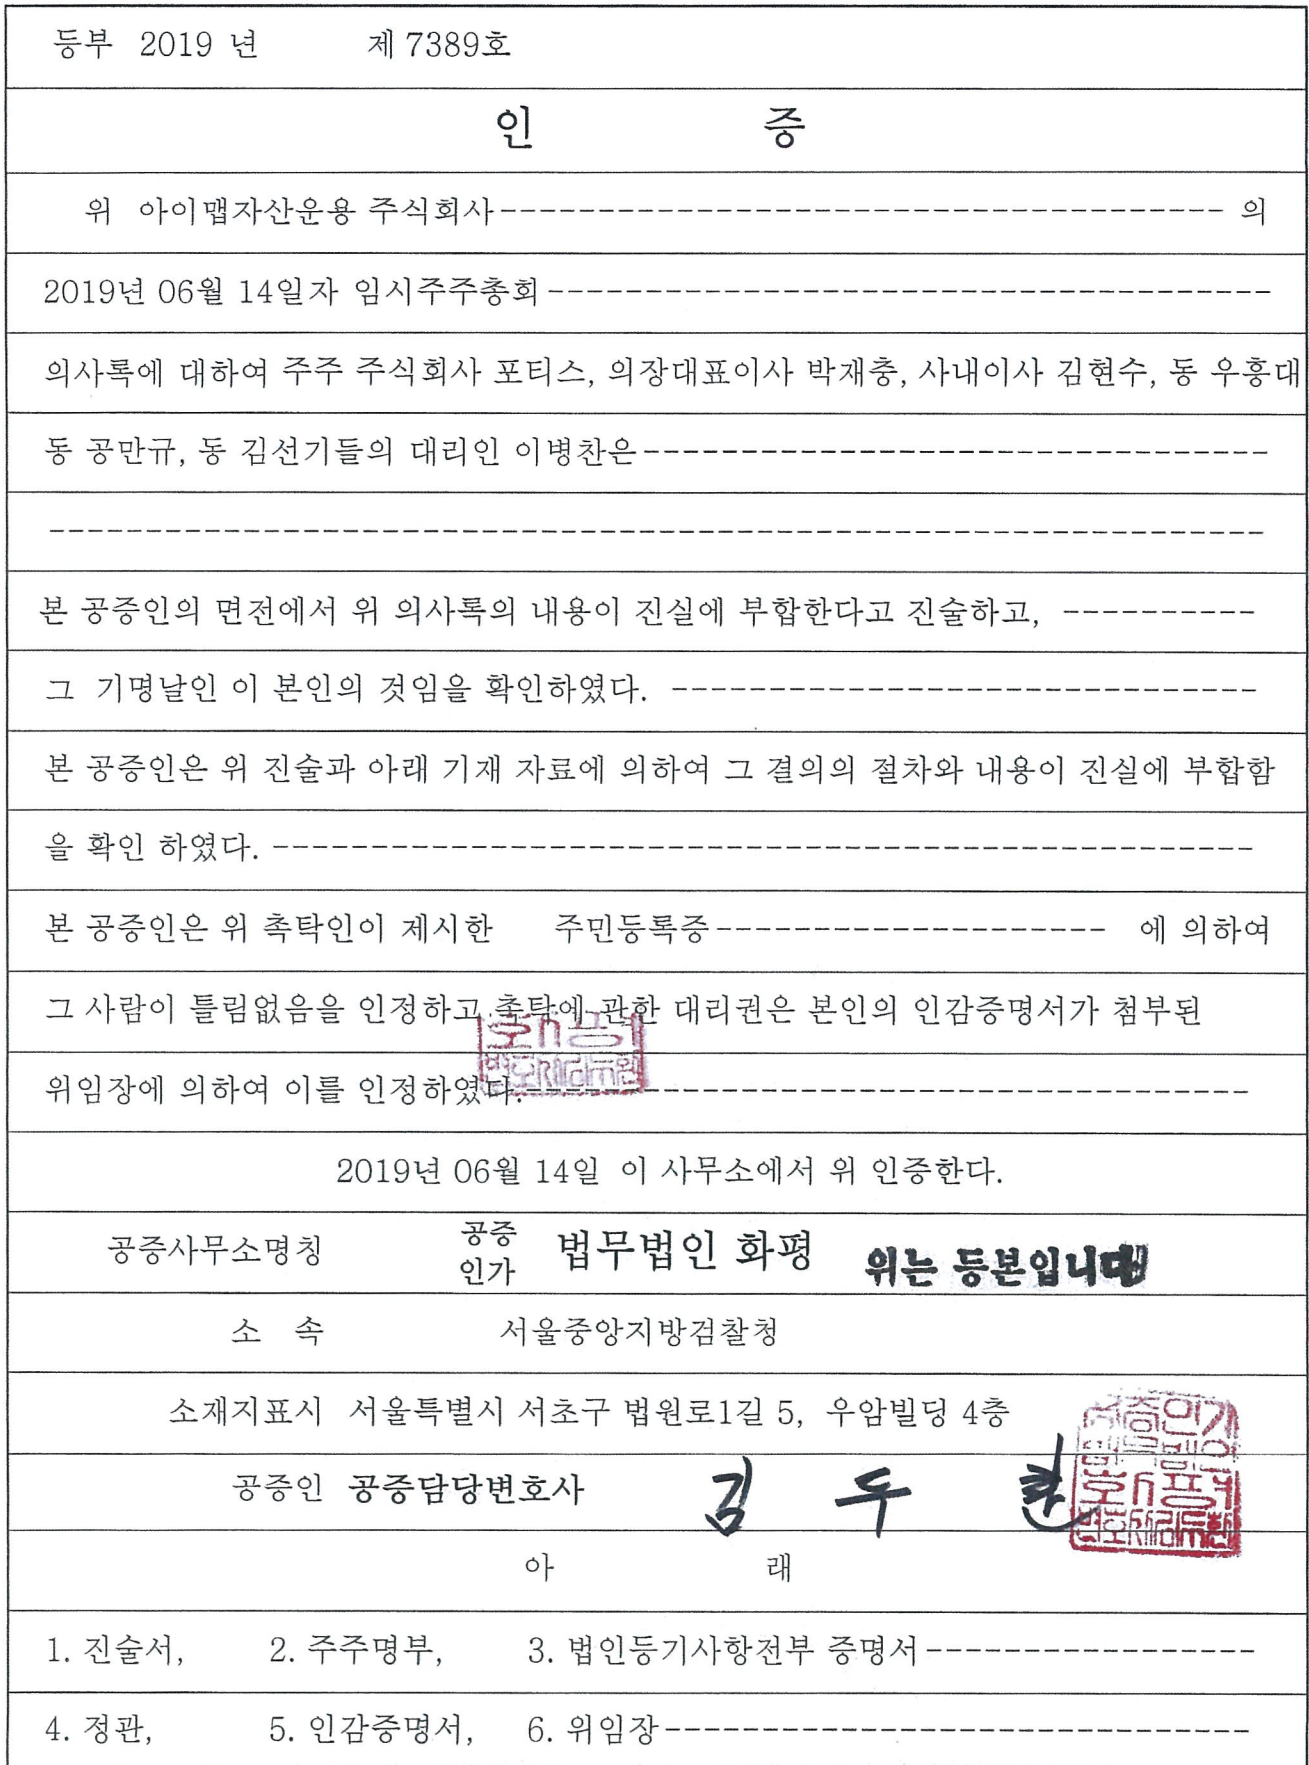 등부 2019 년 제 7389호
인 증
위 아이맵자산운용 주식회사------------------------------------- 의
2019년 06월 14일자 임시주주총회-------------------------------------
의사록에 대하여 주주 주식회사 포티스, 의장대표이사 박재충, 사내이사 김현수, 동 우흥대
동 공만규, 동 김선기들의 대리인 이병찬은--------------------------------
---------------------------------------------------------------
본 공증인의 면전에서 위 의사록의 내용이 진실에 부합한다고 진술하고, ----------
그 기명날인 이 본인의 것임을 확인하였다. ------------------------------
본 공증인은 위 진술과 아래 기재 자료에 의하여 그 결의의 절차와 내용이 진실에 부합함
을 확인 하였다. --------------------------------------------------
본 공증인은 위 촉탁인이 제시한 주민등록증-------------------- 에 의하여
그 사람이 틀림없음을 인정하고 촉탁에 관한 대리권은 본인의 인감증명서가 첨부된
위임장에 의하여 이를 인정하였다.-------------------------------------
2019년 06월 14일 이 사무소에서 위 인증한다.
공증사무소명칭 공증인가 법무법인 화평 위는 등본입니다
소 속 서울중앙지방검찰청
소재지표시 서울특별시 서초구 법원로1길 5, 우암빌딩 4층
공증인 공증담당변호사 김 두 환
아 래
1. 진술서, 2. 주주명부, 3. 법인등기사항전부 증명서-----------------
4. 정관, 5. 인감증명서, 6. 위임장------------------------------